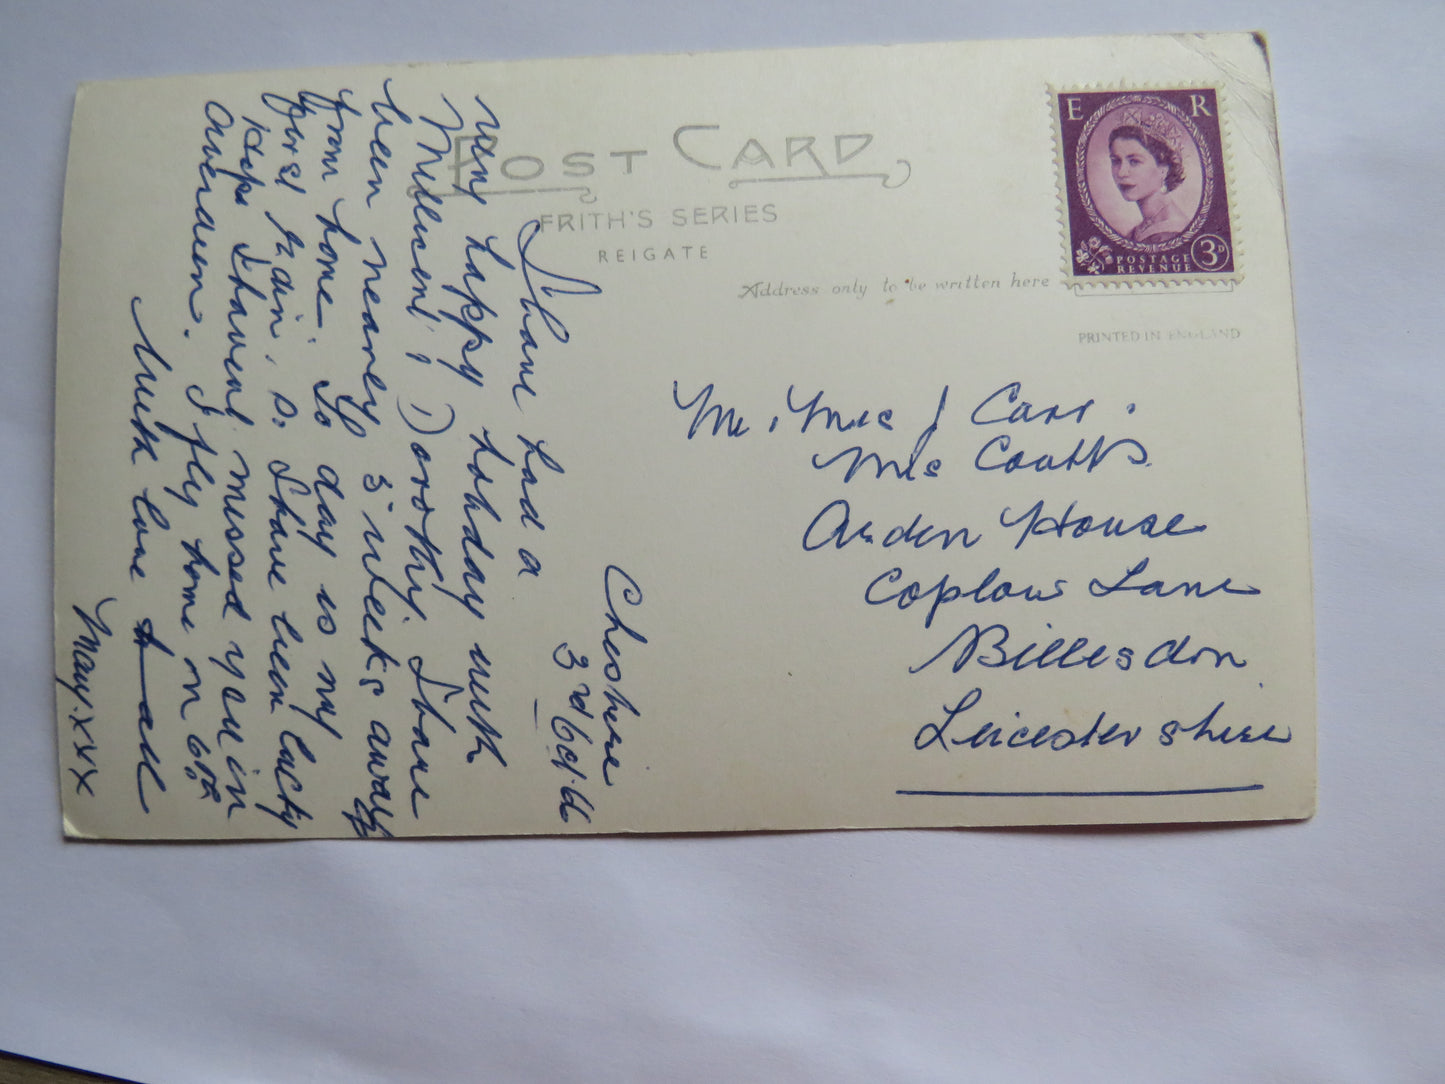 POST CARD
FRITH'S SERIES
REIGATE
Address only to be written here
E R
POSTAGE
REVENUE
3D
PRINTED IN ENGLAND
Cheshire
3rd Oct. 66
I have had a
very happy holiday with
Millicent, Dorothy. I have
been nearly 3 weeks away
from home. To day is my
first rain. so I have been lucky
Hope I havent missed you in
Overdien. I fly home on 6th
With love to all
Mary. xxx
Mr & Mrs J Carr.
Mrs Coutts
Arden House
Coplow Lane
Billesdon
Leicestershire